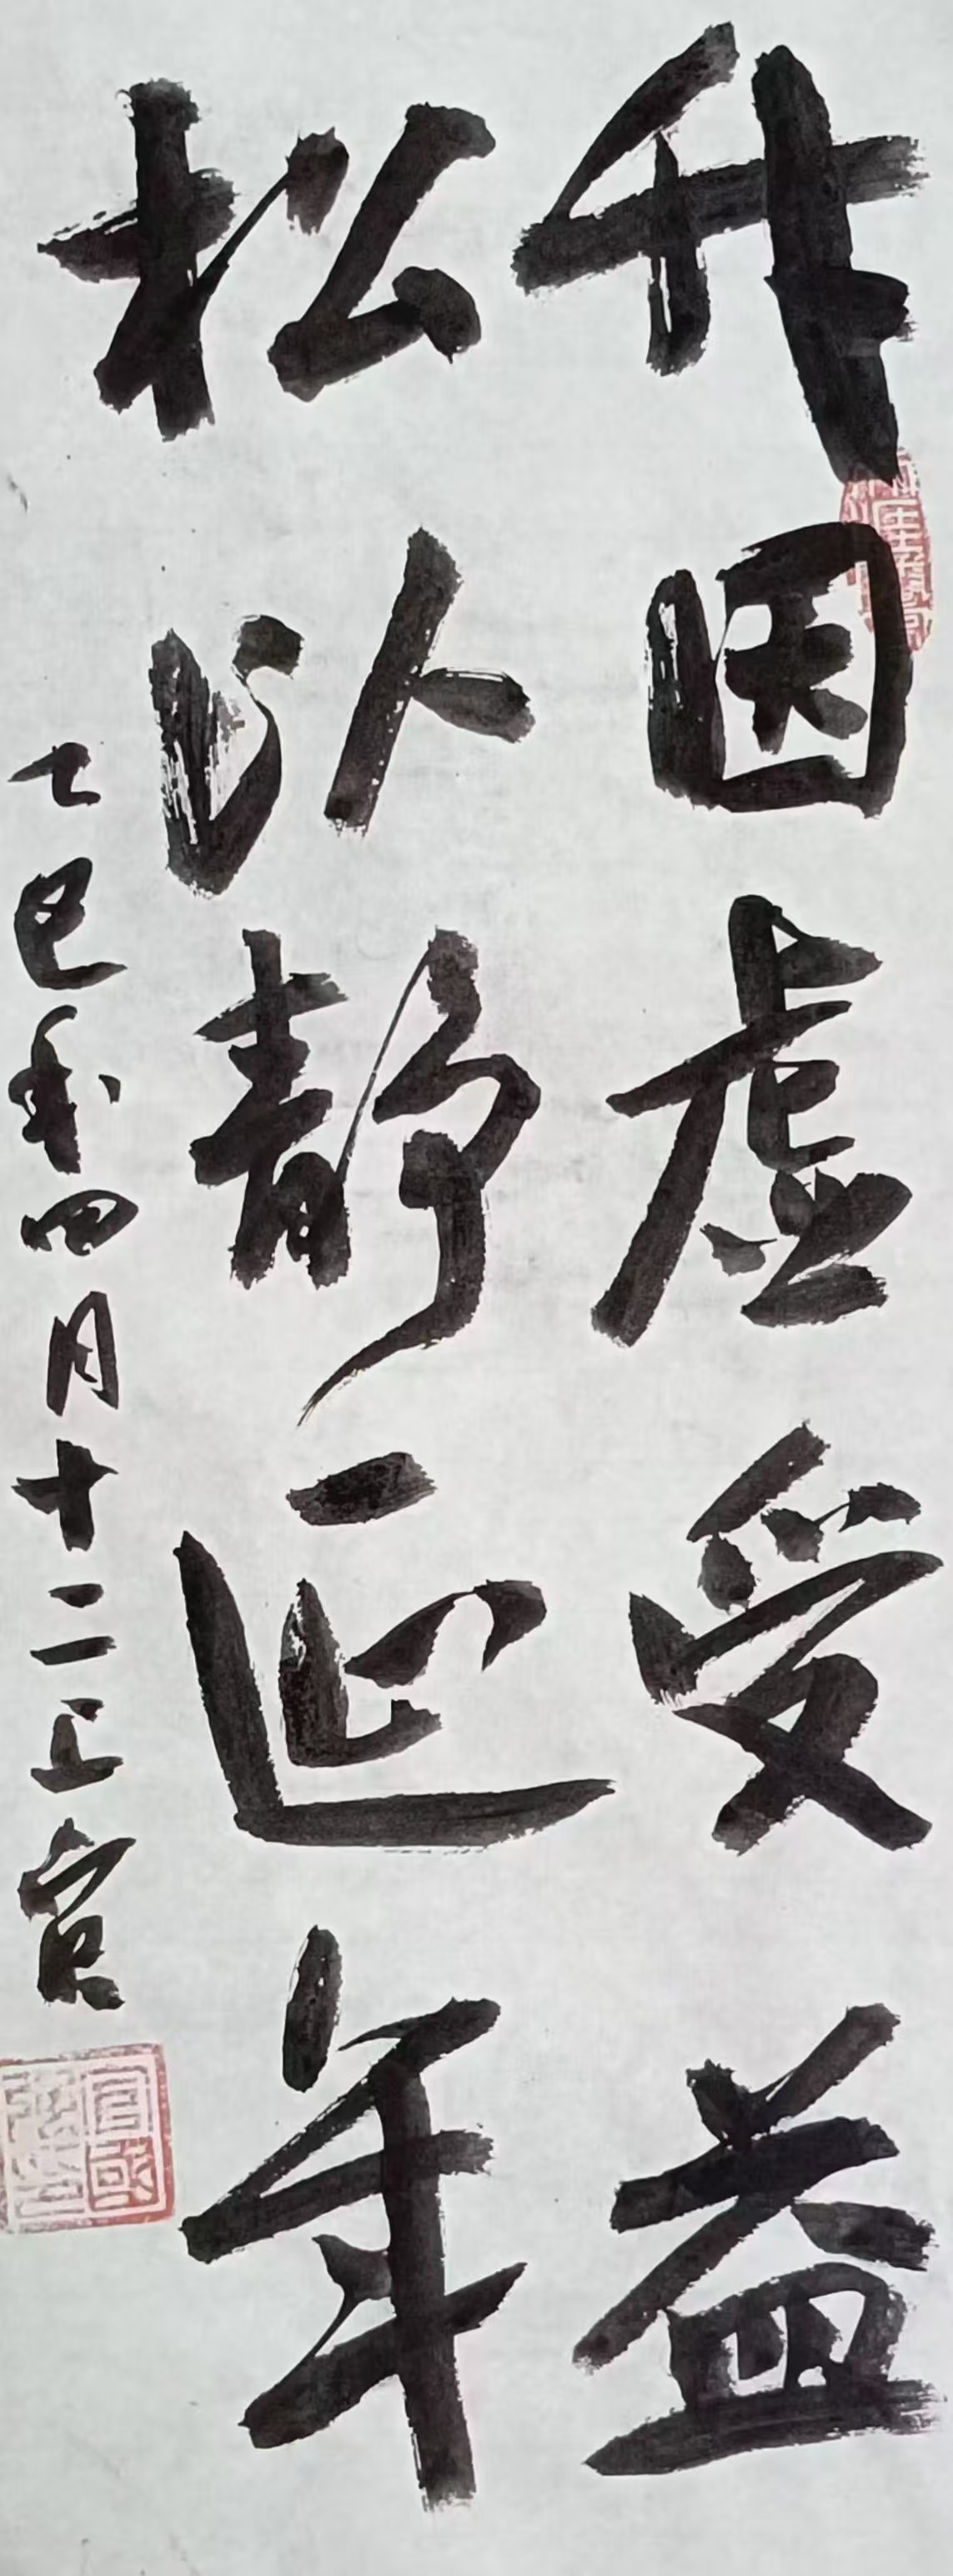 竹因虚受益
松以静延年
乙巳年四月十二上官